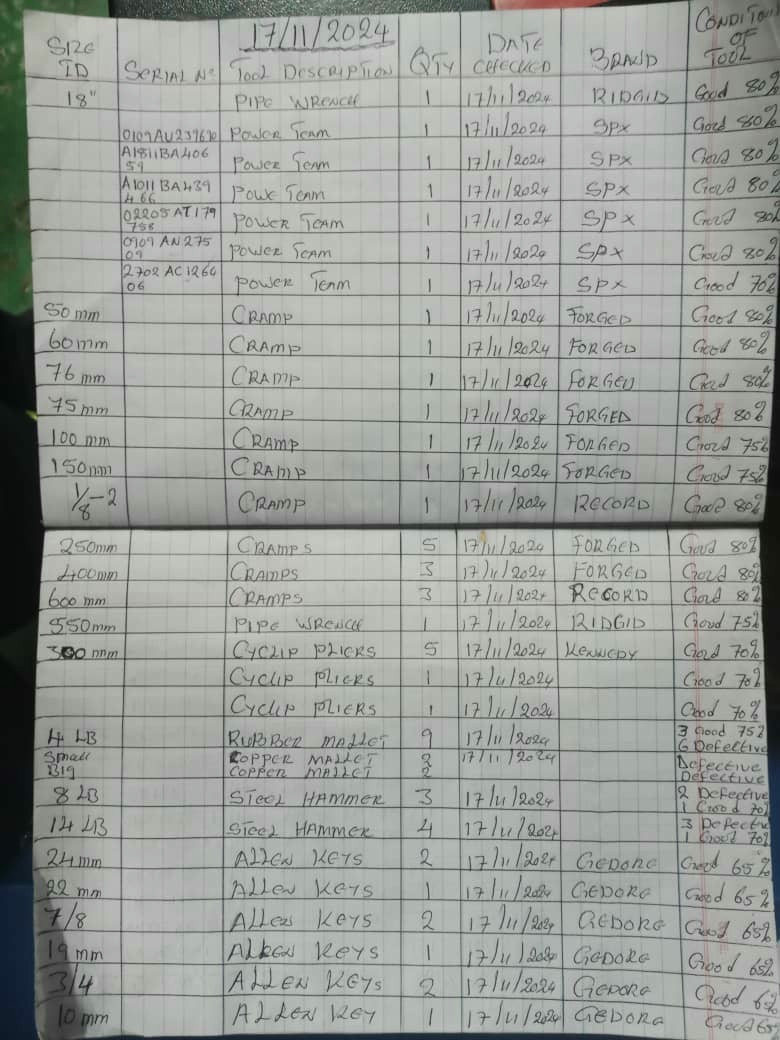 17/11/2024
SIZE ID SERIAL No TOOL DESCRIPTION QTY DATE CHECKED BRAND CONDITION OF TOOL
18" PIPE WRENCH 1 17/11/2024 RIDGID Good 80%
POWER TEAM 1 17/11/2024 SPX Good 80%
A1811BA40659 POWER TEAM 1 17/11/2024 SPX Good 80%
A1011BA439466 POWE TEAM 1 17/11/2024 SPX Good 80%
02205AT179758 POWER TEAM 1 17/11/2024 SPX Good 80%
0909AN27509 POWER TEAM 1 17/11/2024 SPX Good 80%
2702AC126406 POWER TEAM 1 17/11/2024 SPX Good 70%
50mm CRAMP 1 17/11/2024 FORGED Good 80%
60mm CRAMP 1 17/11/2024 FORGED Good 80%
76mm CRAMP 1 17/11/2024 FORGED Good 80%
75mm CRAMP 1 17/11/2024 FORGED Good 80%
100 mm CRAMP 1 17/11/2024 FORGED Good 75%
150mm CRAMP 1 17/11/2024 FORGED Good 75%
1/8-2 CRAMP 1 17/11/2024 RECORD Good 80%
250mm CRAMPS 5 17/11/2024 FORGED Good 80%
400mm CRAMPS 3 17/11/2024 FORGED Good 80%
600 mm CRAMPS 3 17/11/2024 RECORD Good 80%
550mm PIPE WRENCH 1 17/11/2024 RIDGID Good 75%
300 mm CYCLIP PLIERS 5 17/11/2024 KENNEDY Good 70%
CYCLIP PLIERS 1 17/11/2024 Good 70%
CYCLIP PLIERS 1 17/11/2024 Good 70%
4 LB RUBBER MALLET 9 17/11/2024 3 Good 75% 6 Defective
Small COPPER MALLET 2 17/11/2024 Defective
BIg COPPER MALLET 2 Defective
8 LB STEEL HAMMER 3 17/11/2024 2 Defective 1 Good 70%
14 LB STEEL HAMMER 4 17/11/2024 3 Defective 1 Good 70%
24mm ALLEN KEYS 2 17/11/2024 GEDORE Good 65%
22 mm ALLEN KEYS 1 17/11/2024 GEDORE Good 65%
7/8 ALLEN KEYS 2 17/11/2024 GEDORE Good 65%
19 mm ALLEN KEYS 1 17/11/2024 GEDORE Good 65%
3/4 ALLEN KEYS 2 17/11/2024 GEDORE Good 65%
10 mm ALLEN KEY 1 17/11/2024 GEDORE Good 65%